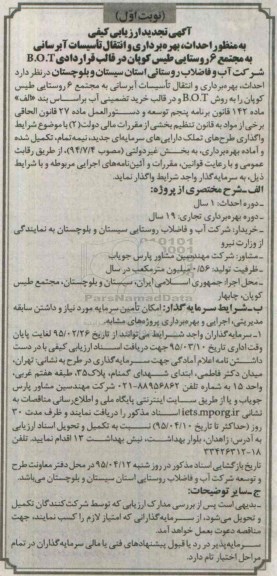 (نوبت اول)
آگهی تجدید ارزیابی کیفی
به منظور احداث، بهره‌برداری و انتقال تأسیسات آبرسانی
به مجتمع ۶ روستایی طیس کوپان در قالب قراردادی B.O.T
شرکت آب و فاضلاب روستائی استان سیستان و بلوچستان در نظر دارد
احداث، بهره‌برداری و انتقال تأسیسات آبرسانی به مجتمع ۶ روستایی طیس
کوپان را به روش B.O.T و در قالب خرید تضمینی آب براساس بند «الف»
ماده ۱۴۲ قانون برنامه پنجم توسعه و دستورالعمل ماده ۲۷ قانون الحاقی
برخی از مواد به قانون تنظیم بخشی از مقررات مالی دولت(۲) با موضوع شرایط
واگذاری طرح‌های تملک دارایی‌های سرمایه‌ای جدید، نیمه‌تمام، تکمیل شده
و آماده بهره‌برداری، به بخش غیردولتی (مصوب ۹۴/۷/۴)، از طریق رقابت
عمومی و با رعایت قوانین، مقررات و آئین‌نامه‌های اجرایی مربوطه و با شرایط
ذیل، به سرمایه‌گذار واجد شرایط واگذار نماید.
الف ـ شرح مختصری از پروژه:
ـ دوره احداث: ۱ سال
ـ دوره بهره‌برداری تجاری: ۱۹ سال
ـ خریدار: شرکت آب و فاضلاب روستایی استان سیستان و بلوچستان به نمایندگی
از وزارت نیرو
ـ مشاور: شرکت مهندسین مشاور پارس جویاب
ـ ظرفیت تولید: ۰/۵۶ میلیون مترمکعب در سال
ـ محل اجرا: جمهوری اسلامی ایران، سیستان و بلوچستان، مجتمع طیس
کوپان، چابهار
ب ـ شرایط سرمایه‌گذار: امکان تأمین سرمایه مورد نیاز و داشتن سابقه
مدیریتی، اجرایی و بهره‌برداری پروژه‌های مشابه.
۱ـ سرمایه‌گذاران واجد شرایط می‌توانند از تاریخ ۹۵/۰۲/۲۶ لغایت پایان
وقت اداری تاریخ ۹۵/۰۳/۱۰ جهت دریافت اسناد ارزیابی کیفی با در دست
داشتن نامه اعلام آمادگی جهت سرمایه‌گذاری در طرح به نشانی: تهران،
میدان دکتر فاطمی، ابتدای شهدای گمنام، پلاک ۳۵، طبقه هفتم غربی،
واحد ۱۵ به شماره تلفن ۸۸۹۵۶۸۶۲-۰۲۱ شرکت مهندسین مشاور پارس
جویاب و یا از طریق سایت اینترنتی پایگاه ملی و اطلاع‌رسانی مناقصات به
نشانی iets.mporg.ir اسناد مذکور را دریافت نمایند و ظرف مدت ۳۰
روز (حداکثر تا تاریخ ۹۵/۰۴/۱۰) نسبت به تکمیل و تحویل اسناد ارزیابی
به آدرس: زاهدان، بلوار بهداشت، نبش بهداشت ۱۳ اقدام نمایید. تلفن
۱۸-۳۳۴۲۶۳۱۲
تاریخ بازگشایی اسناد مذکور در روز شنبه ۹۵/۰۴/۱۲ در محل دفتر معاونت طرح
و توسعه شرکت آب و فاضلاب روستایی استان سیستان و بلوچستان می‌باشد.
ج ـ سایر توضیحات:
ـ بدیهی است پس از بررسی مدارک ارزیابی که توسط شرکت‌کنندگان تکمیل
و تحویل می‌شود، از سرمایه‌گذارانی که امتیاز لازم را کسب نمایند، جهت
مناقصه دعوت بعمل خواهد آمد.
ـ سرمایه‌پذیر در رد یا قبول پیشنهادهای فنی یا مالی سرمایه‌گذاران در تمام
مراحل اختیار تام دارد.